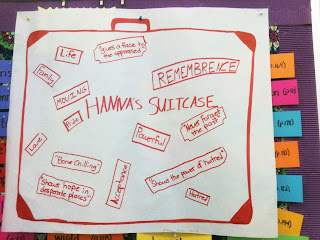 Life
"gives a face to
the oppressed"
Family
REMEMBREICE
MOVING
HANNA'S SUITCASE
Pride
"Never forget
the past"
Powerful
Love
"Bone Chilling"
"Shows the power of hatred"
Acceptance
"Shows hope in
desperate places"
Hatred